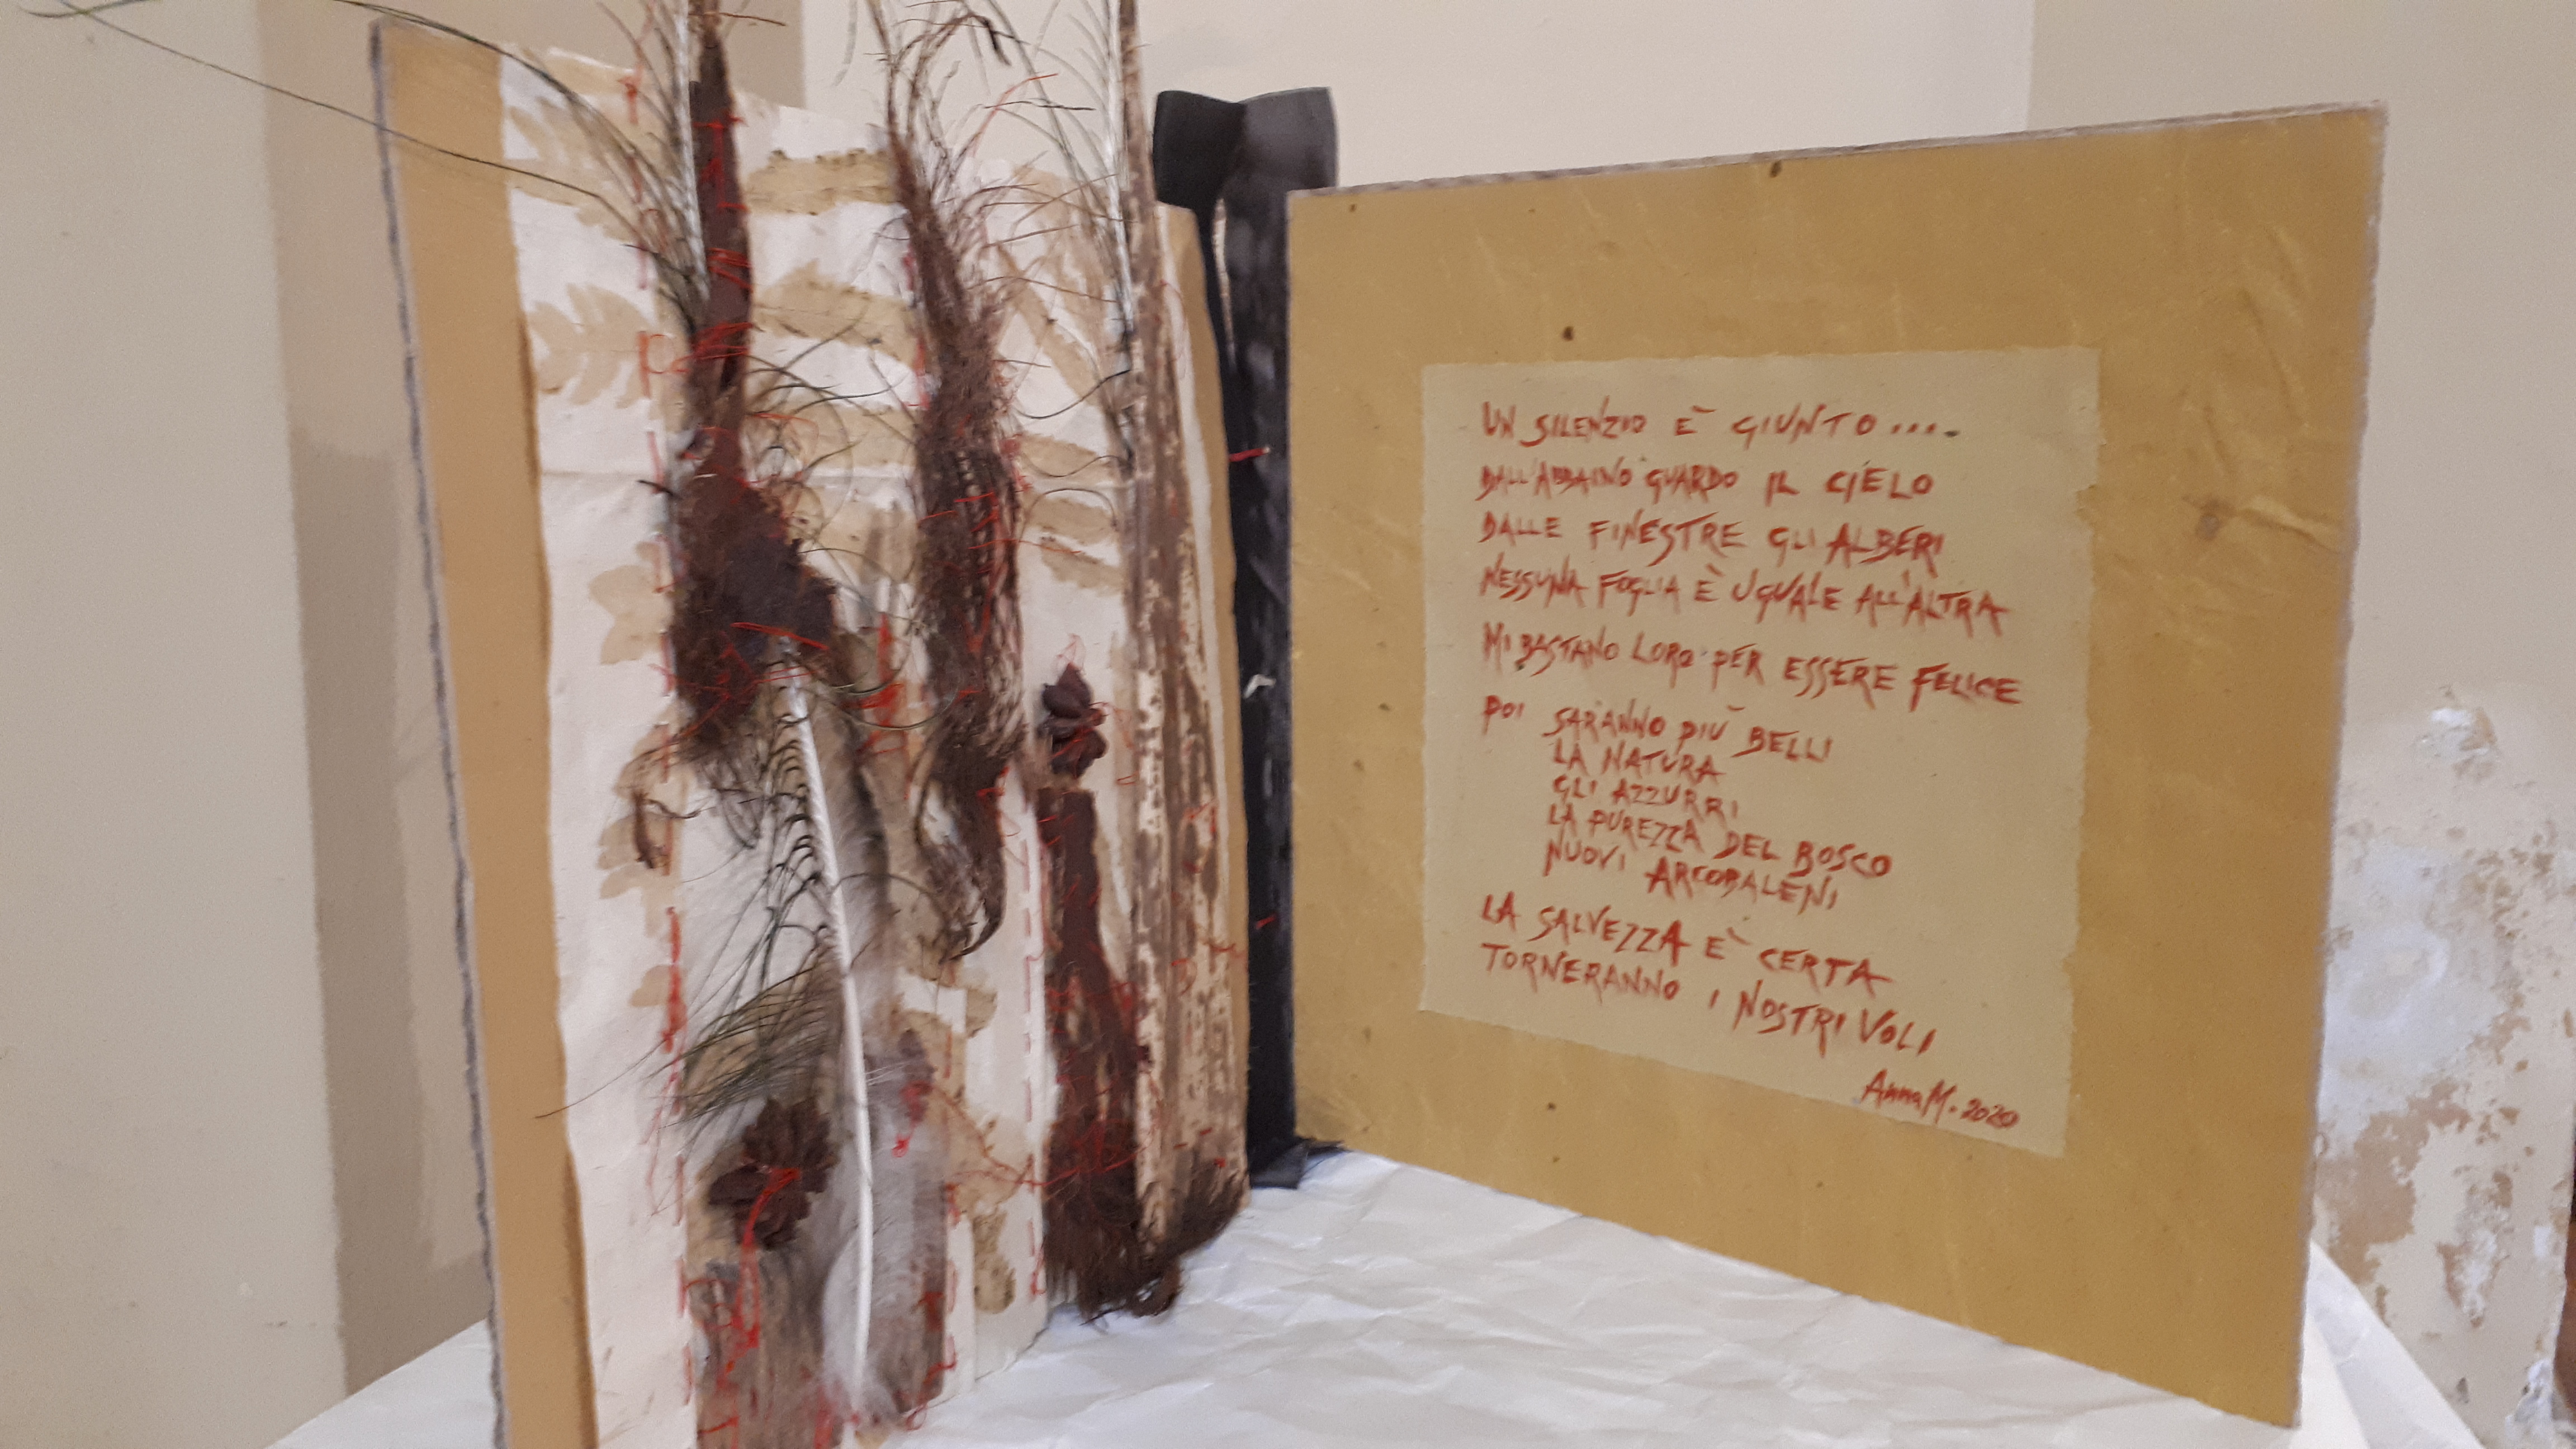 UN SILENZIO È GIUNTO....
DALL'ABBAINO GUARDO IL CIELO
DALLE FINESTRE GLI ALBERI
NESSUNA FOGLIA È UGUALE ALL'ALTRA
MI BASTANO LORO PER ESSERE FELICE
POI SARANNO PIÙ BELLI
LA NATURA
GLI AZZURRI
LA PUREZZA DEL BOSCO
NUOVI ARCOBALENI
LA SALVEZZA È CERTA
TORNERANNO I NOSTRI VOLI
Anna M. 2020